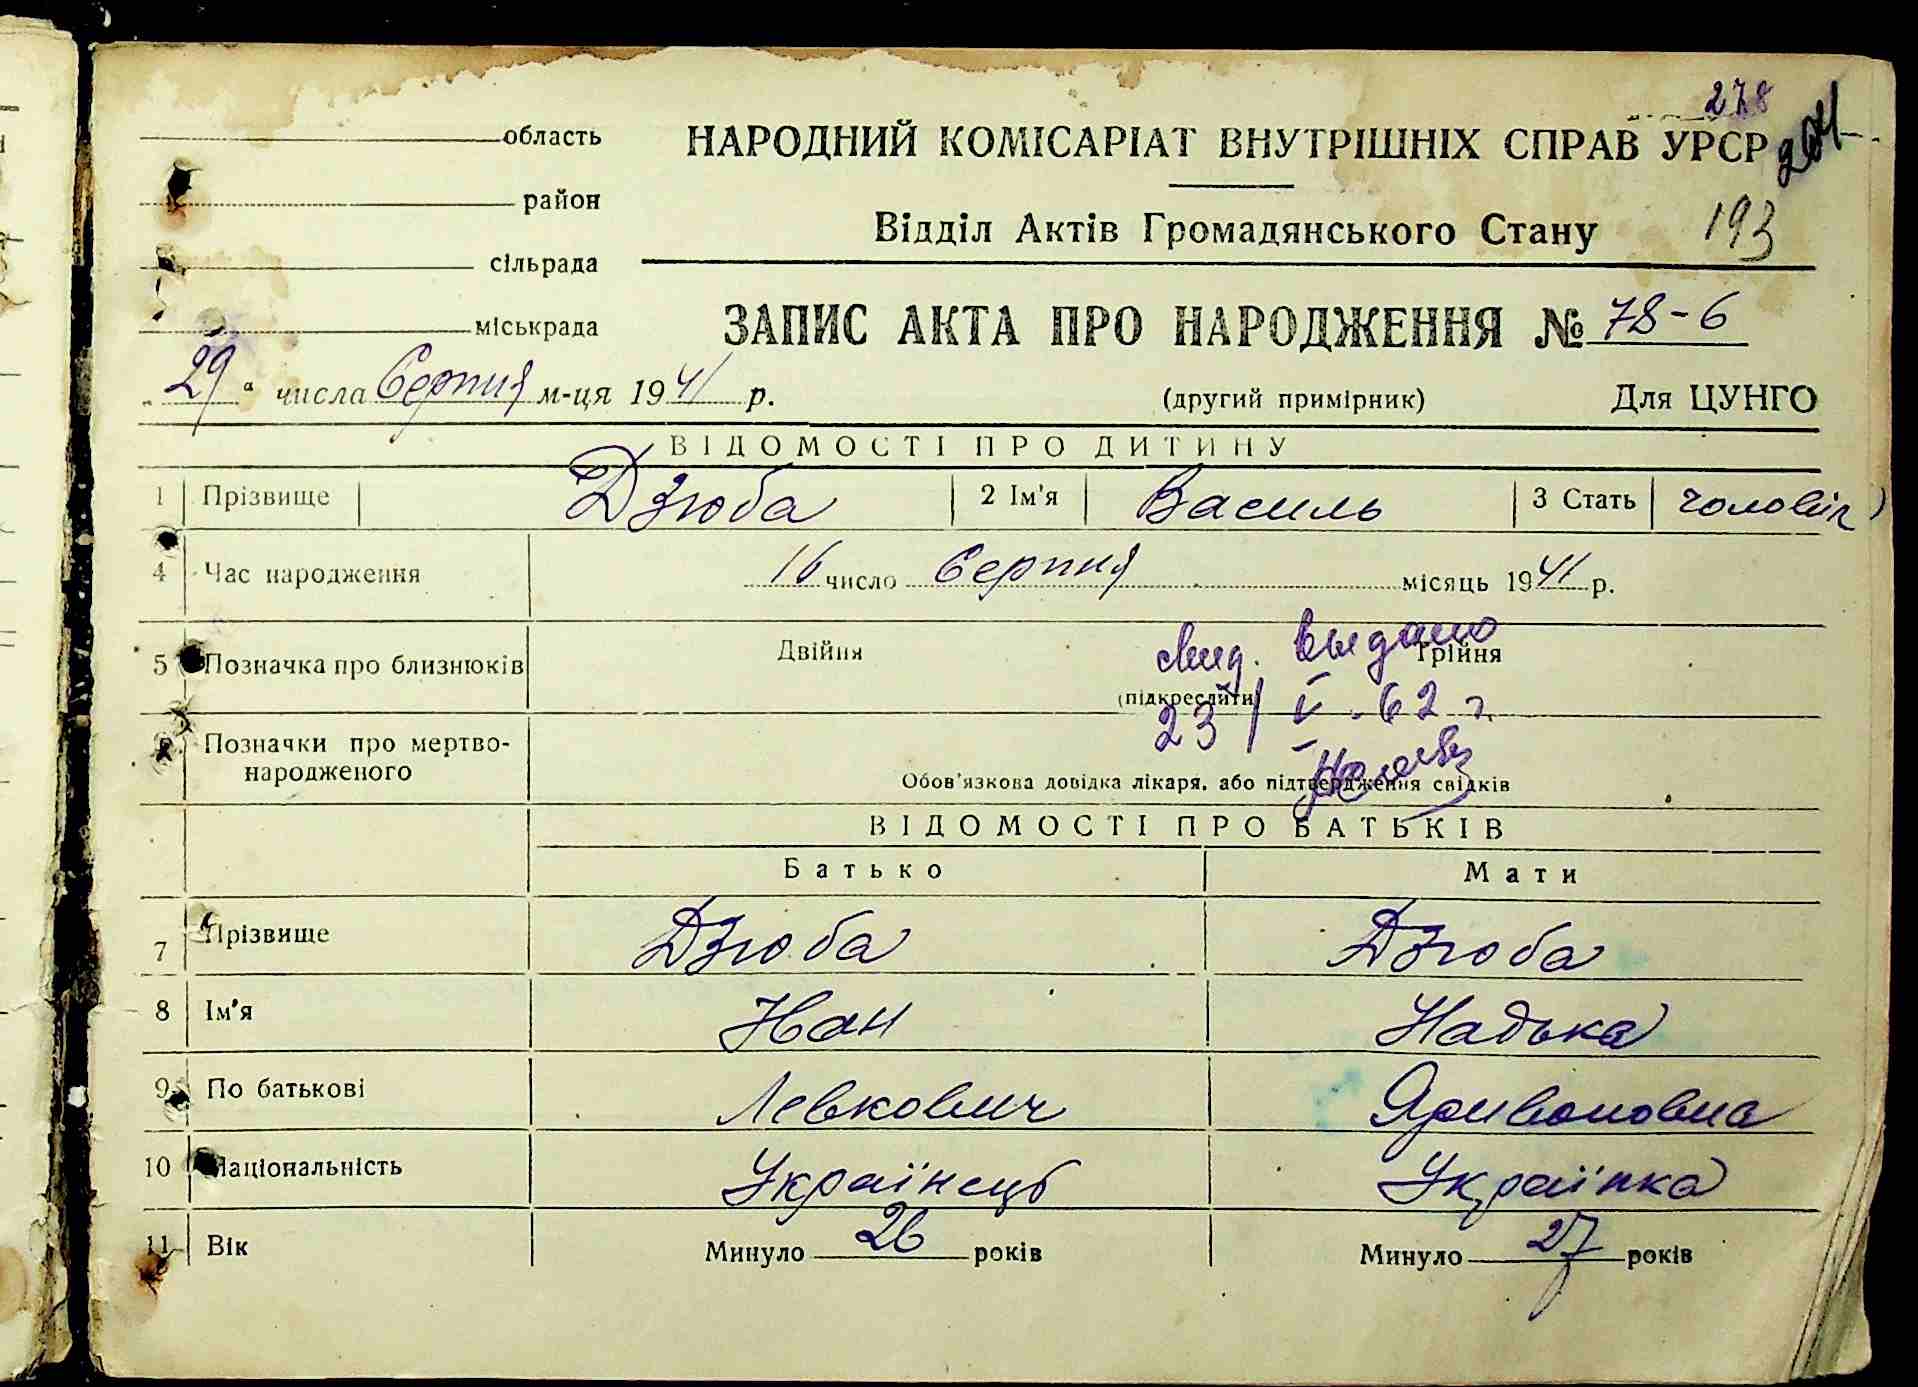 278
область
НАРОДНИЙ КОМІСАРІАТ ВНУТРІШНІХ СПРАВ УРСР
204
район
Відділ Актів Громадянського Стану 193
сільрада
міськрада
ЗАПИС АКТА ПРО НАРОДЖЕННЯ № 78-6
„29" числа Серпня м-ця 1941 р.
(другий примірник) Для ЦУНГО
ВІДОМОСТІ ПРО ДИТИНУ
1 Прізвище Дзюба 2 Ім'я Василь 3 Стать чоловіч
4 Час народження 16 число Серпня місяць 1941 р.
5 Позначка про близнюків Двійня Трійня
(підкреслити)
выдано
23/V-62 г.
6 Позначки про мертво-
народженого
Обов'язкова довідка лікаря, або підтвердження свідків
ВІДОМОСТІ ПРО БАТЬКІВ
Батько Мати
7 Прізвище Дзюба Дзюба
8 Ім'я Иван Надька
9 По батькові Левкович Яривоновна
10 Національність Українець Українка
11 Вік Минуло 26 років Минуло 27 років